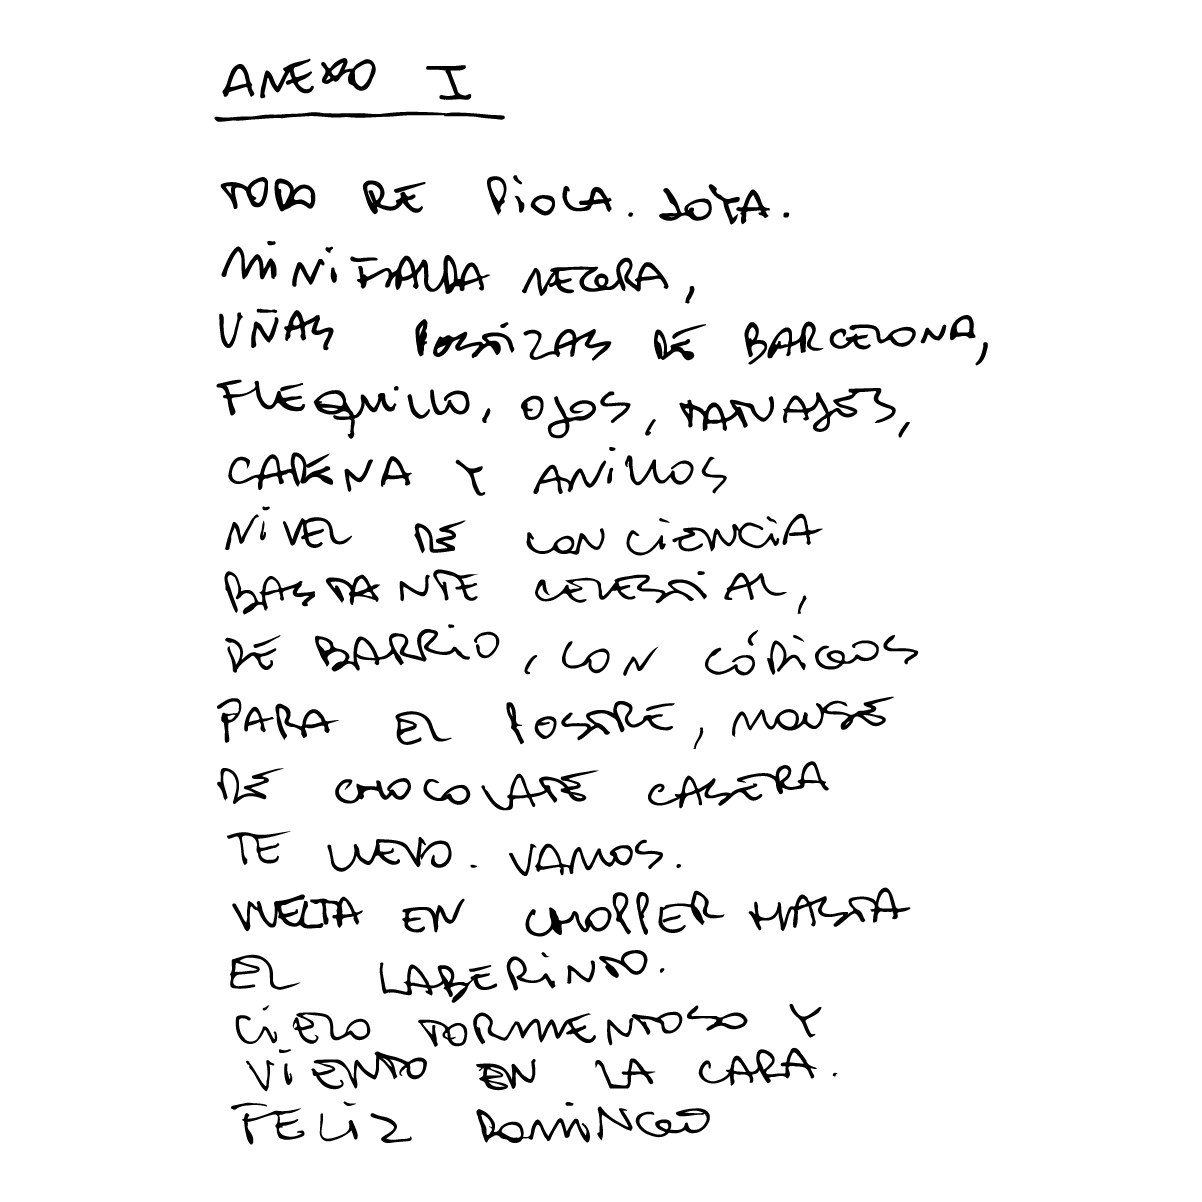 ANEXO I
TODO RE PIOLA. JOYA.
MINIFALDA NEGRA,
UÑAS POSTIZAS DE BARCELONA,
FLEQUILLO, OJOS, TATUAJES,
CADENA Y ANILLOS
NIVEL DE CONCIENCIA
BASTANTE CELESTIAL,
DE BARRIO, CON CÓDIGOS
PARA EL POSTRE, MOUSE
DE CHOCOLATE CASERA
TE LLEVO. VAMOS.
VUELTA EN CHOPPER HASTA
EL LABERINTO.
CIELO TORMENTOSO Y
VIENTO EN LA CARA.
FELIZ DOMINGO